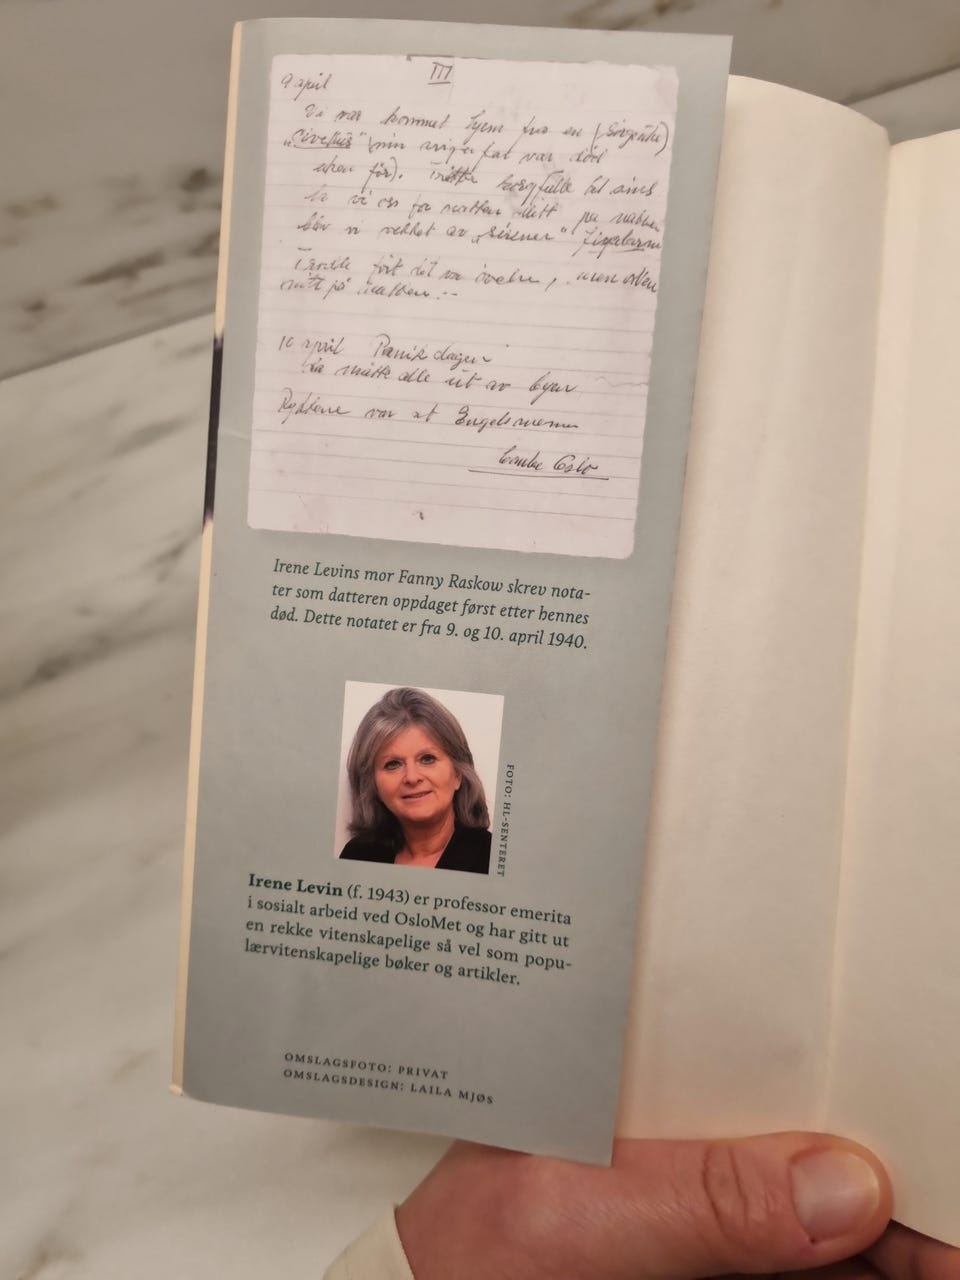 III
9 april
Vi var kommet hjem fra en (Sørgeuke)
"Sivehus" (min svigerfar var død
uken før). Trøtte sorgfulle til sinns
la vi oss for natten. Midt på natten
blev vi vekket av "sirener" flyalarm
Trodde først det var øvelse, men
midt på natten. --
10 april Panikdagen
Da måtte alle ut av byen
Ryktene var at Engelsmennene
bombe Oslo
Irene Levins mor Fanny Raskow skrev nota-
ter som datteren oppdaget først etter hennes
død. Dette notatet er fra 9. og 10. april 1940.
FOTO: HL-SENTERET
Irene Levin (f. 1943) er professor emerita
i sosialt arbeid ved OsloMet og har gitt ut
en rekke vitenskapelige så vel som popu-
lærvitenskapelige bøker og artikler.
OMSLAGSFOTO: PRIVAT
OMSLAGSDESIGN: LAILA MJØS